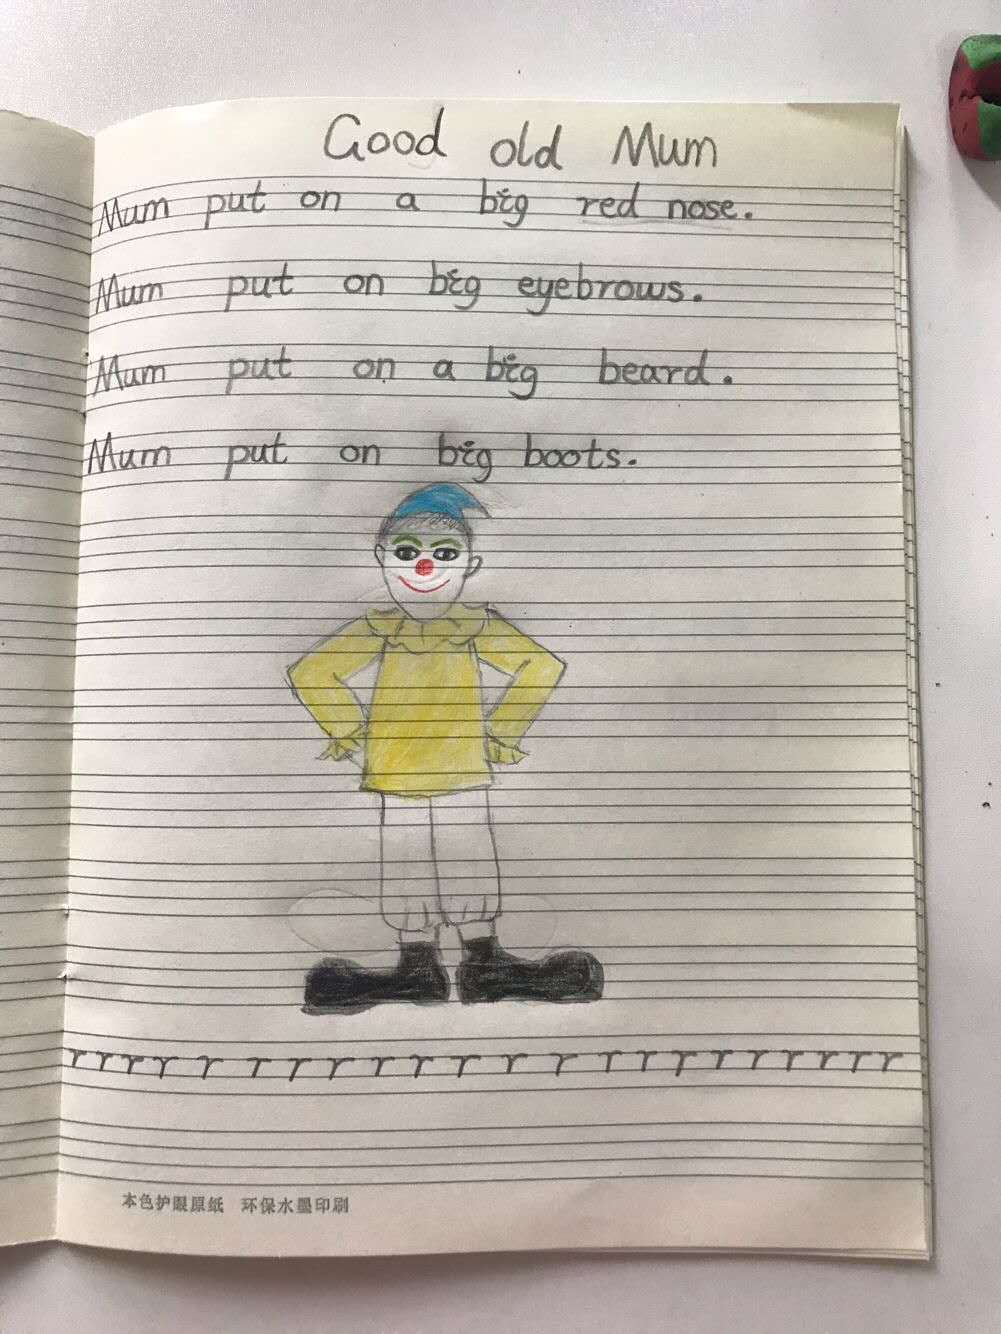 Good old Mum
Mum put on a big red nose.
Mum put on big eyebrows.
Mum put on a big beard.
Mum put on big boots.
r r r r r r r r r r r r r r r r r r r r r
本色护眼原纸 环保水墨印刷